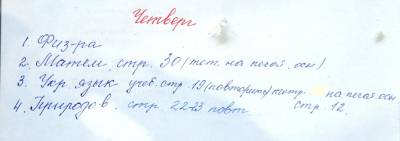 Четверг
1. Физ-ра
2. Матем. стр. 30 (тет. на печат. осн)
3. Укр. язык учеб. стр. 19 (повторить) на печат. осн
4. Природов. стр. 22-23 повт стр. 12